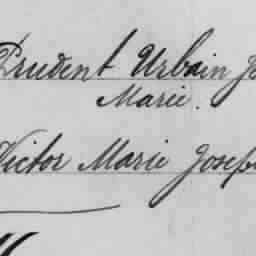 Prudent Urbain Jo
Marie.
Victor Marie Josep